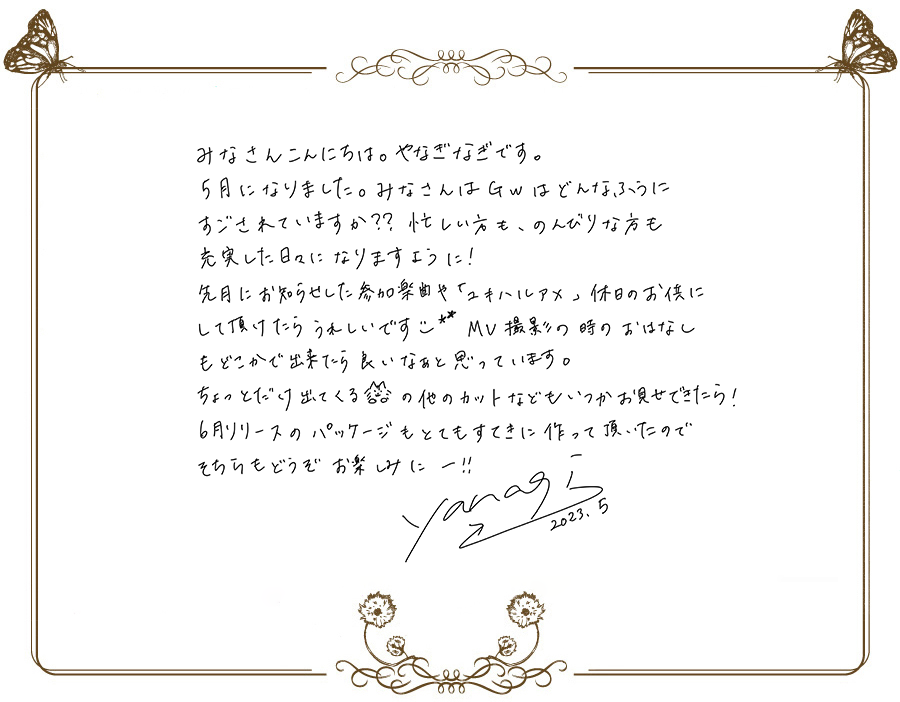 みなさんこんにちは。やなぎなぎです。
5月になりました。みなさんはGWはどんなふうに
すごされていますか?? 忙しい方も、のんびりな方も
充実した日々になりますように!
先月にお知らせした参加楽曲や「ユキハルアメ」休日のお供に
して頂けたらうれしいです MV撮影の時のおはなし
もどこかで出来たら良いなぁと思っています。
ちょっとだけ出てくる の他のカットなどもいつかお見せできたら!
6月リリースのパッケージもとてもすてきに作って頂いたので
そちらもどうぞお楽しみにー!!
yanagi
2023.5